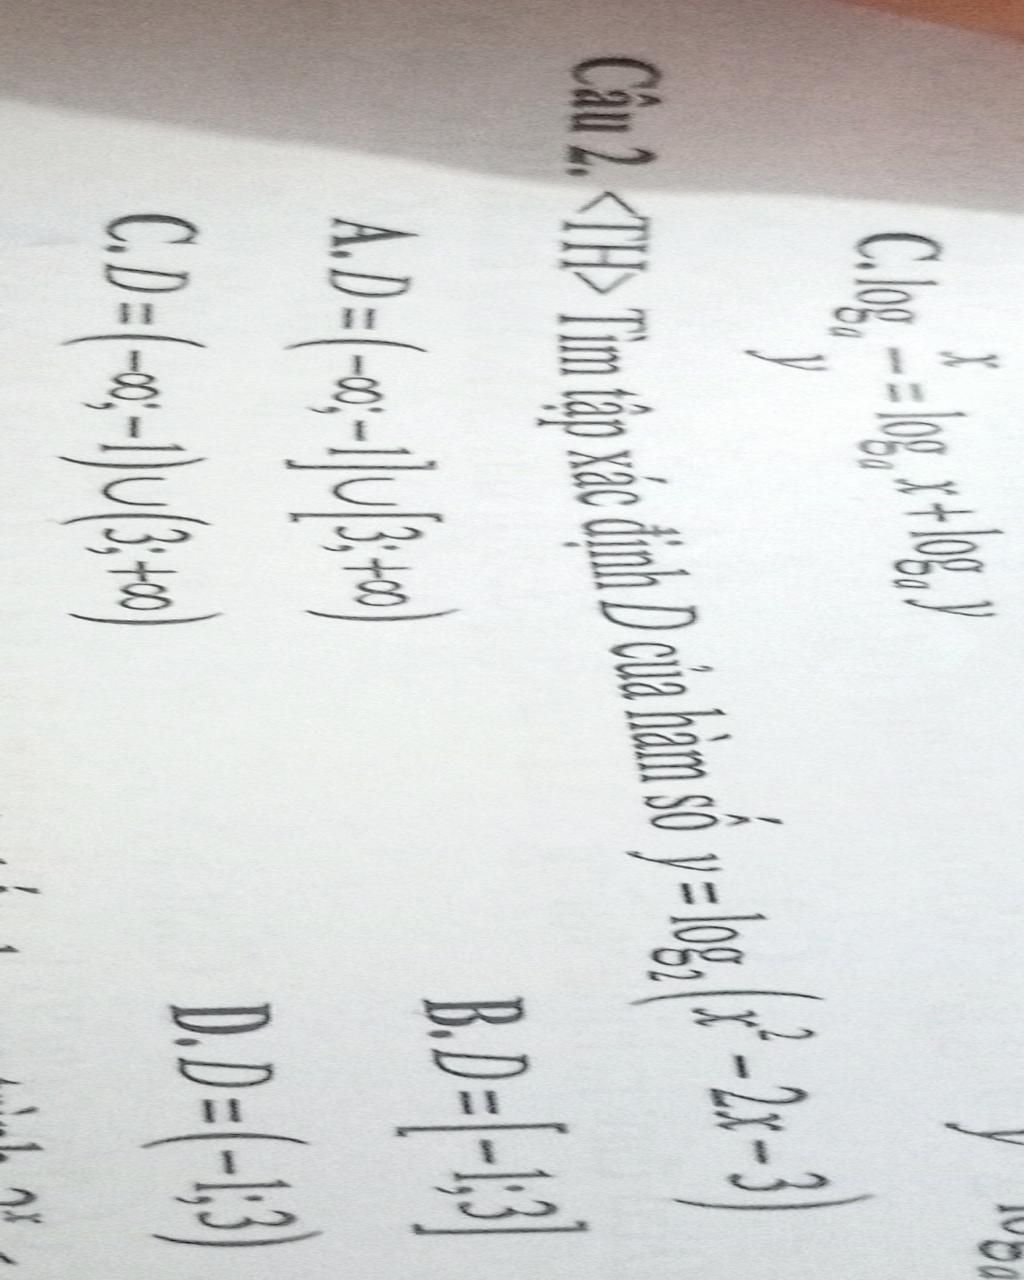 C. log_a x/y = log_a x + log_a y
Câu 2. <TH> Tìm tập xác định D của hàm số y = log₂(x² − 2x − 3)
A. D = (−∞; −1] ∪ [3; +∞)
B. D = [−1; 3]
C. D = (−∞; −1) ∪ (3; +∞)
D. D = (−1; 3)